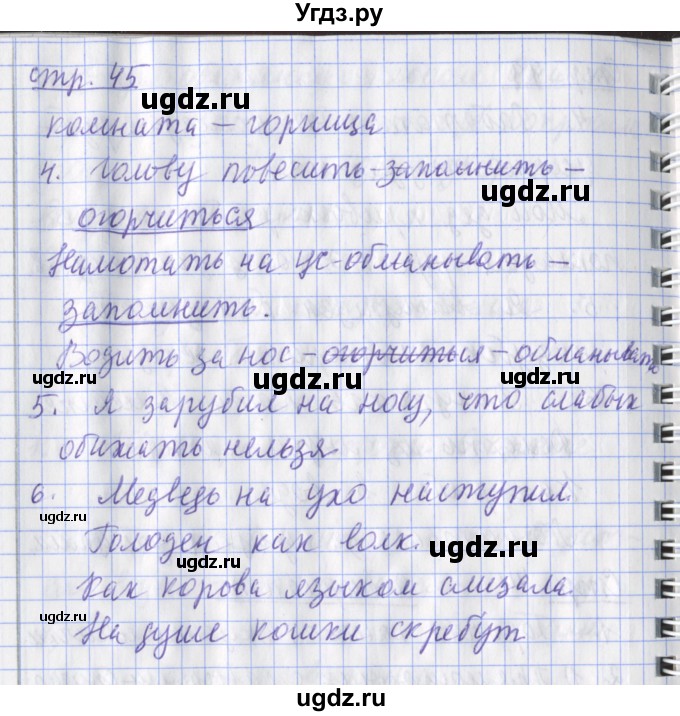 Угдз.ру
стр. 45
ugdz.ru
комната – горница
4. Голову повесить – запомнить –
ugdz.ru
ugdz.ru
огорчиться
Намотать на ус – обманывать –
запомнить.
Водить за нос – огорчиться – обманывать
ugdz.ru ugdz.ru ugdz.ru
5. Я зарубил на носу, что слабых
обижать нельзя
6. Медведь на ухо наступил.
ugdz.ru
Голоден как волк.
ugdz.ru
Как корова языком слизала
ugdz.ru
На душе кошки скребут
ugdz.ru
ugdz.ru